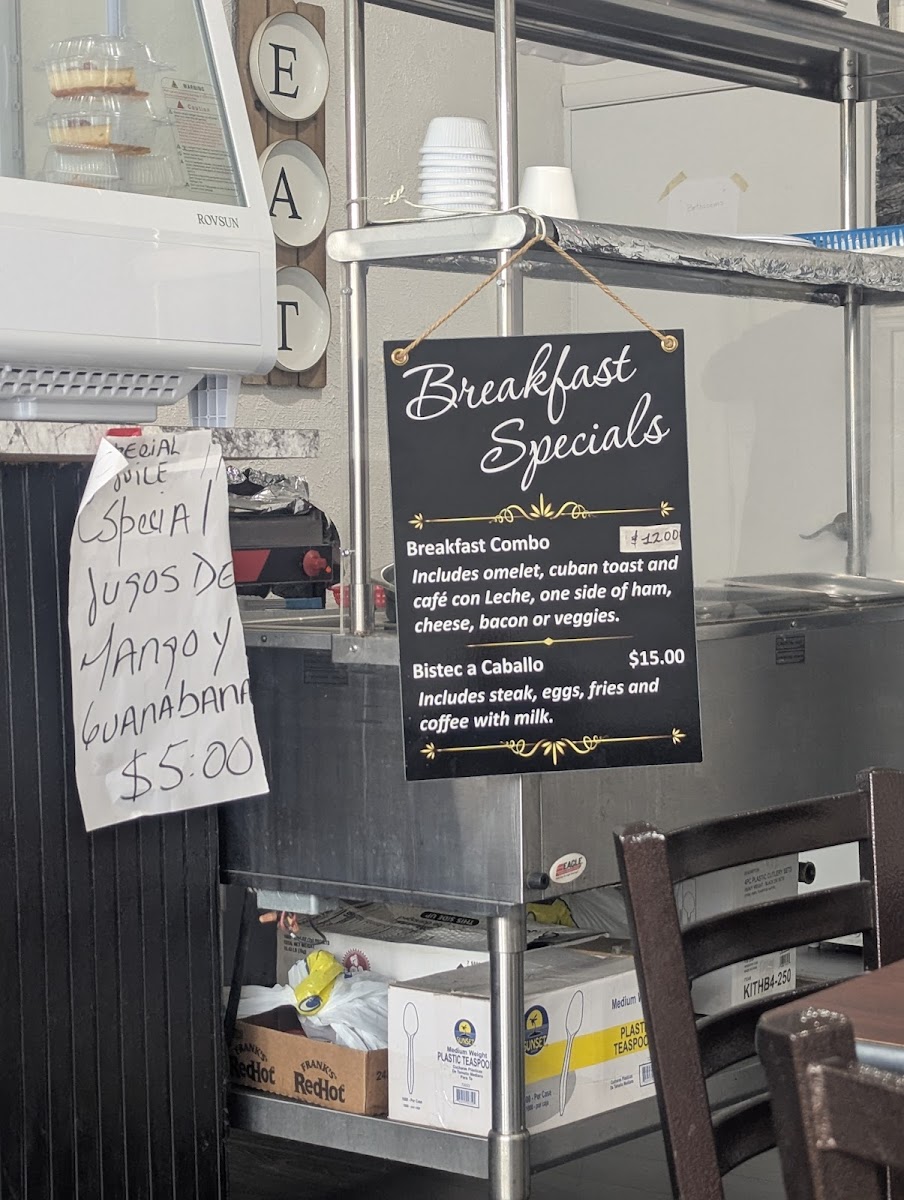 E
A
T
WARNING
Caution
ROVSUN
Bathrooms
Breakfast
Specials
Breakfast Combo $1200
Includes omelet, cuban toast and
café con Leche, one side of ham,
cheese, bacon or veggies.
Bistec a Caballo $15.00
Includes steak, eggs, fries and
coffee with milk.
Especial
Jugos De
Mango y
Guanabana
$5:00
EAGLE
THIS SIDE UP
4PC PLASTIC CUTLERY SETS
KITHB4-250
FRANK'S
RedHot
FRANK'S
RedHot
SUNSET
Medium Weight
PLASTIC TEASPOO
SUNSET
Medium
PLAST
TEASPOO